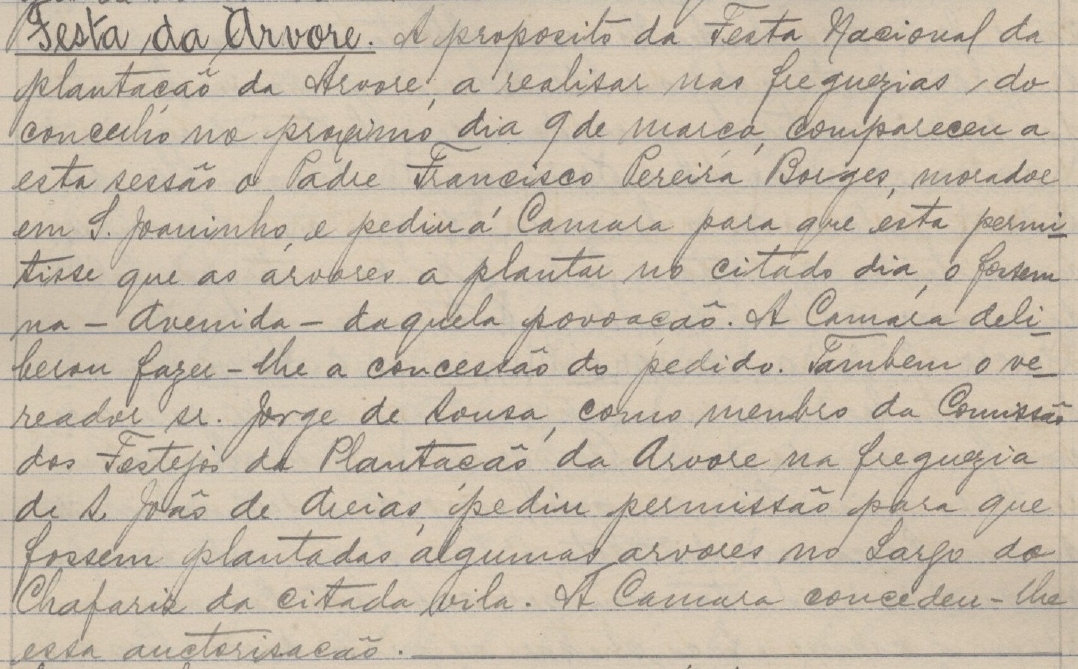 Festa da Arvore. A proposito da Festa Nacional da
plantacão da Arvore, a realisar nas freguezias do
concelho no proximo dia 9 de março, compareceu a
esta sessão o Padre Francisco Pereira Borges, morador
em S. Joaninho, e pediu á Camara para que esta permi-
tisse que as arvores a plantar no citado dia, o fossem
na - Avenida - daquela povoacão. A Camara deli-
berou fazer-lhe a concessão do pedido. Tambem o ve-
reador sr. Jorge de Sousa, como menbro da Comissão
dos Festejos da Plantacão da Arvore na freguezia
de S. João de Areias, pediu permissão para que
fossem plantadas algumas arvores no Largo do
Chafariz da citada vila. A Camara concedeu-lhe
essa auctorisacão.